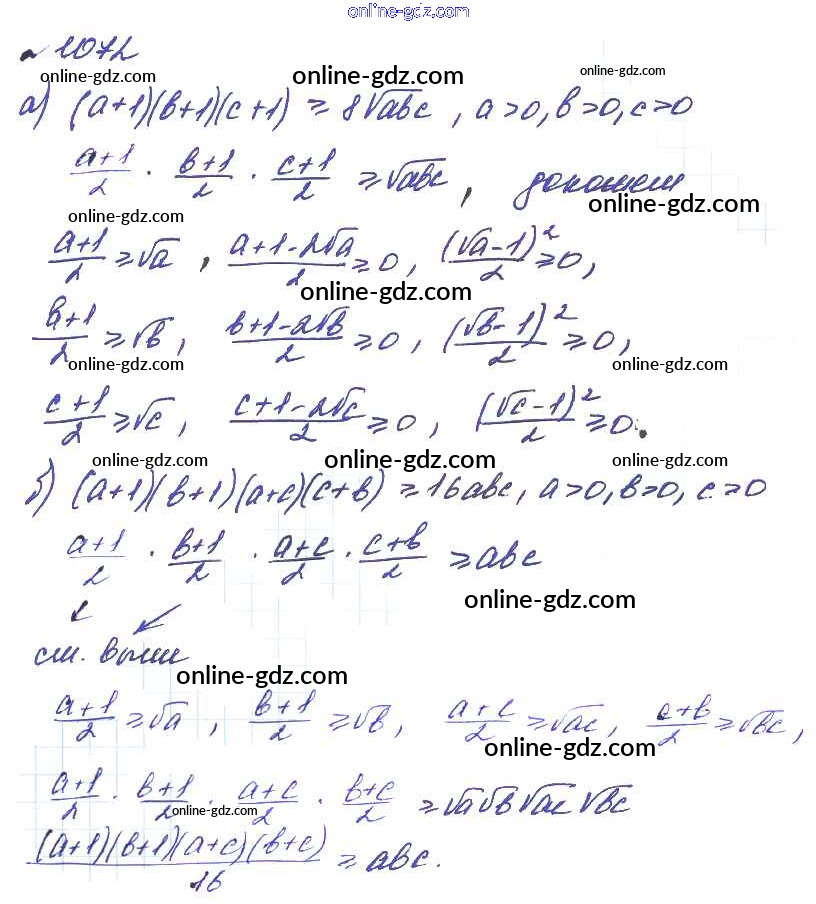 online-gdz.com
№ 1072
online-gdz.com online-gdz.com online-gdz.com
а) (a+1)(b+1)(c+1) ≥ 8√abc, a>0, b>0, c>0
(a+1)/2 · (b+1)/2 · (c+1)/2 ≥ √abc, докажем
online-gdz.com online-gdz.com
(a+1)/2 ≥ √a, (a+1-2√a)/2 ≥ 0, (√a-1)²/2 ≥ 0,
online-gdz.com
(b+1)/2 ≥ √b, (b+1-2√b)/2 ≥ 0, (√b-1)²/2 ≥ 0,
online-gdz.com online-gdz.com
(c+1)/2 ≥ √c, (c+1-2√c)/2 ≥ 0, (√c-1)²/2 ≥ 0.
online-gdz.com online-gdz.com online-gdz.com
б) (a+1)(b+1)(a+c)(c+b) ≥ 16abc, a>0, b>0, c>0
(a+1)/2 · (b+1)/2 · (a+c)/2 · (c+b)/2 ≥ abc
online-gdz.com
см. выше
online-gdz.com
(a+1)/2 ≥ √a, (b+1)/2 ≥ √b, (a+c)/2 ≥ √ac, (c+b)/2 ≥ √bc,
online-gdz.com
(a+1)/2 · (b+1)/2 · (a+c)/2 · (b+c)/2 ≥ √a√b√ac√bc
online-gdz.com
(a+1)(b+1)(a+c)(b+c)/16 ≥ abc.